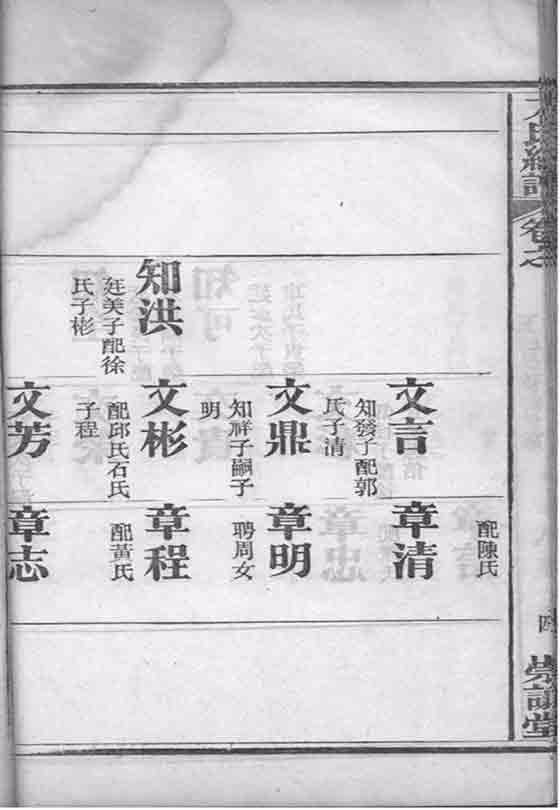 氏總譜
卷之
四
知洪
廷美子配徐
氏子彬
文言
知發子配郭
氏子清
文鼎
知祥子嗣子
明
文彬
配邱氏石氏
子程
文芳
配陳氏
章清
章明
聘周女
章程
配黃氏
章志